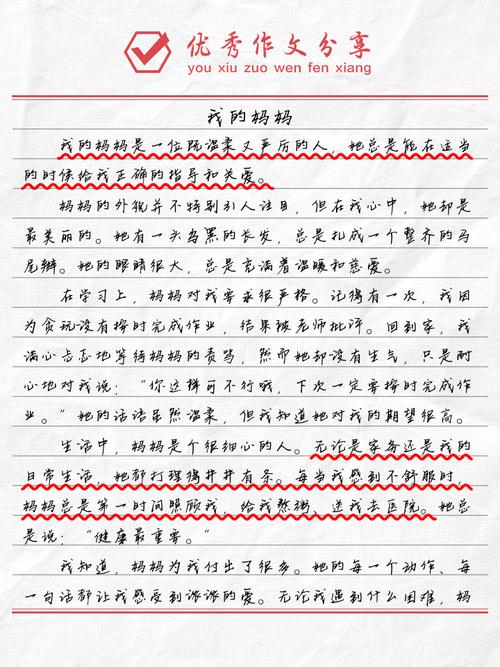 优秀作文分享
you xiu zuo wen fen xiang
我的妈妈
我的妈妈是一位既温柔又严厉的人，她总是能在适当
的时候给我正确的指导和关爱。
妈妈的外貌并不特别引人注目，但在我心中，她却是
最美丽的。她有一头乌黑的长发，总是扎成一个整齐的马
尾辫。她的眼睛很大，总是充满着温暖和慈爱。
在学习上，妈妈对我要求很严格。记得有一次，我因
为贪玩没有按时完成作业，结果被老师批评。回到家，我
满心忐忑地等待妈妈的责骂，然而她却没有生气，只是耐
心地对我说：“你这样可不行哦，下次一定要按时完成作
业。”她的话语虽然温柔，但我知道她对我的期望很高。
生活中，妈妈是个很细心的人。无论是家务还是我的
日常生活，她都打理得井井有条。每当我感到不舒服时，
妈妈总是第一时间照顾我，给我熬粥、送我去医院。她总
是说：“健康最重要。”
我知道，妈妈为我付出了很多。她的每一个动作、每
一句话都让我感受到浓浓的爱。无论我遇到什么困难，妈